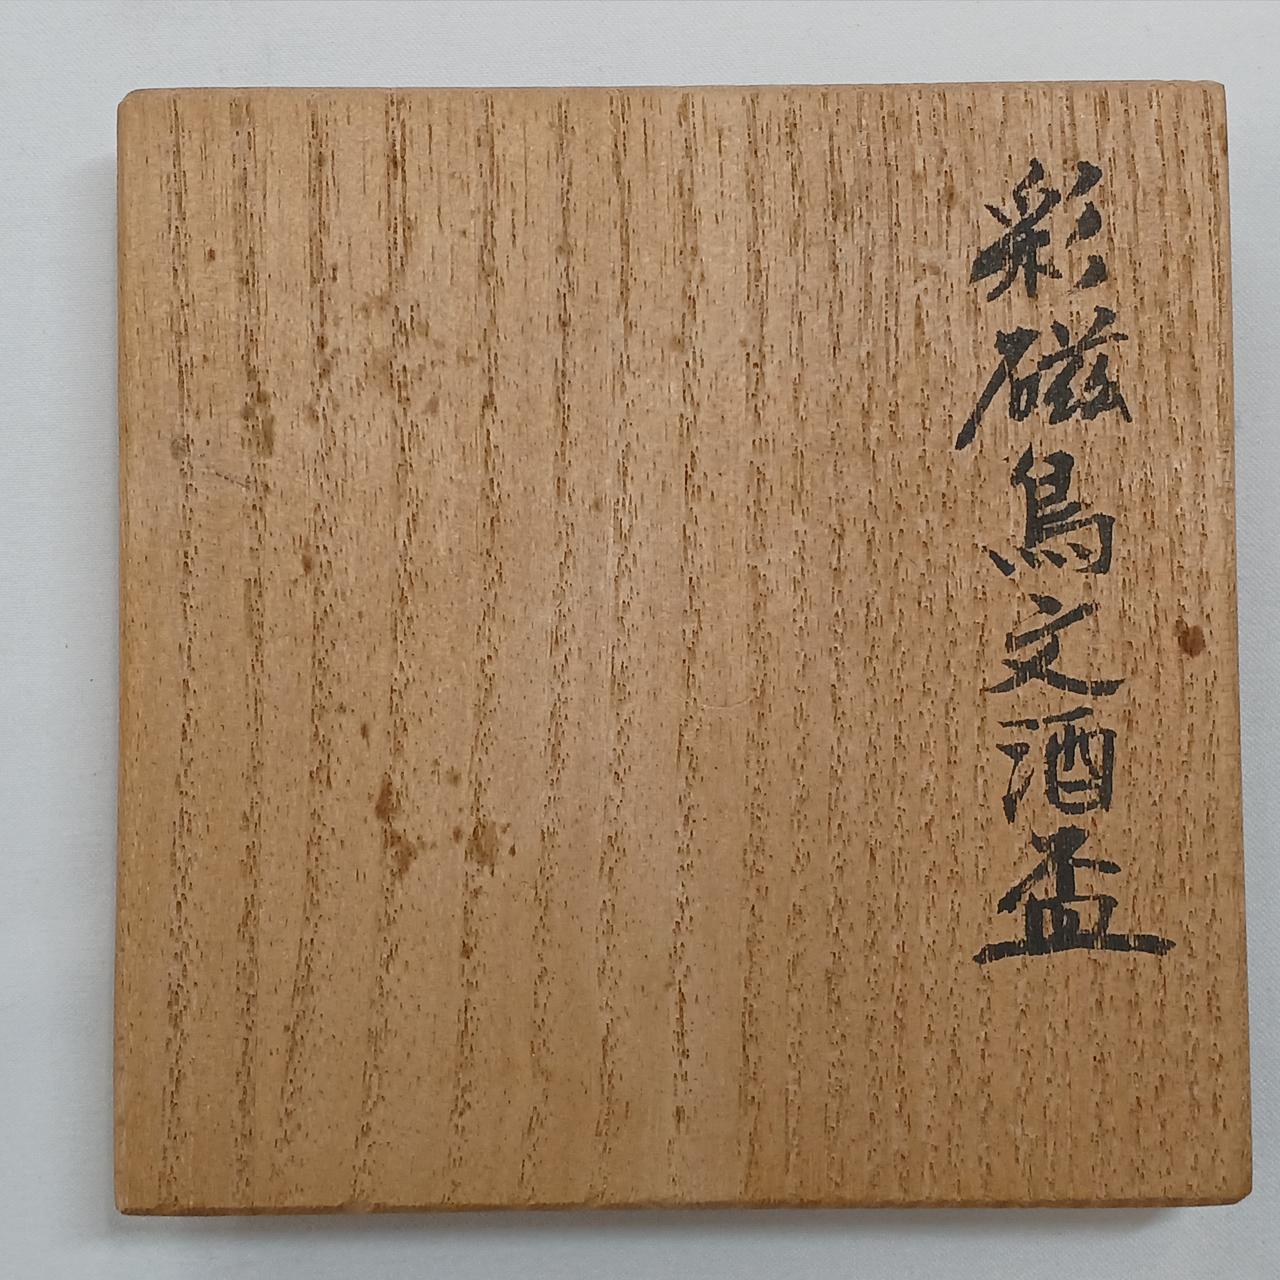 彩磁鳥文酒盃